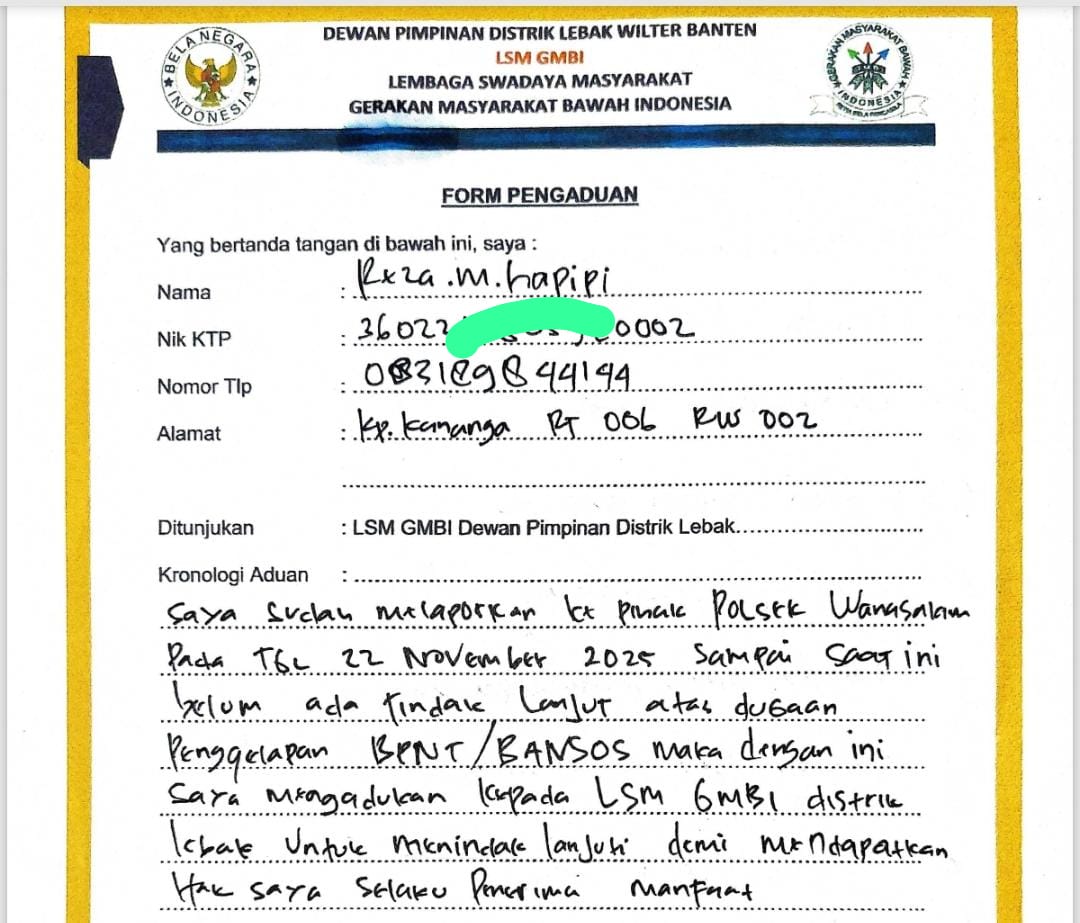 BELA NEGARA
INDONESIA
DEWAN PIMPINAN DISTRIK LEBAK WILTER BANTEN
LSM GMBI
LEMBAGA SWADAYA MASYARAKAT
GERAKAN MASYARAKAT BAWAH INDONESIA
GERAKAN MASYARAKAT BAWAH
INDONESIA
FORM PENGADUAN
Yang bertanda tangan di bawah ini, saya :
Nama : Rexa .M. hapipi
Nik KTP : 36022 0002
Nomor Tlp :
Alamat : Kp. Kananga RT 006 RW 002
Ditunjukan : LSM GMBI Dewan Pimpinan Distrik Lebak
Kronologi Aduan :
Saya Sudah melaporkan ke pihak POLSEK Wanasalam
Pada TGL 22 November 2025 Sampai Saat ini
belum ada tindak Lanjut atas dugaan
Penggelapan BPNT/BANSOS maka dengan ini
Saya mengadukan kepada LSM GMBI distrik
lebak Untuk menindak lanjuti demi mendapatkan
Hak saya selaku Penerima Manfaat